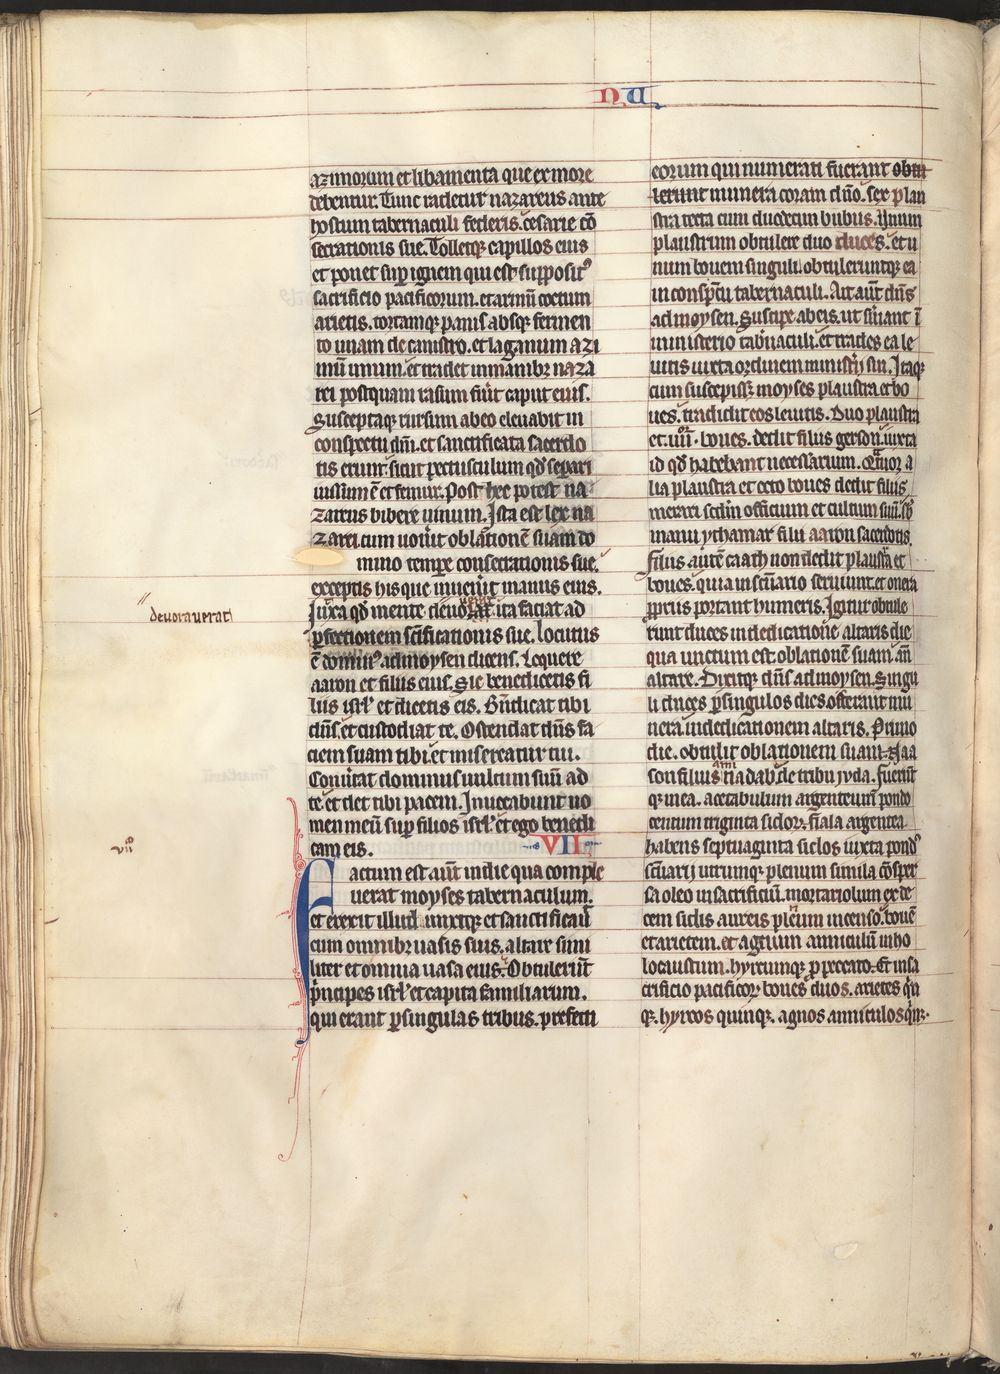 NU
azimorum et libamenta que ex more
debentur. Tunc radetur nazareus ante
hostium tabernaculi federis. cesarie cō
secrationis sue. Tolletqꝫ capillos eius
et ponet suꝑ ignem qui est suppositꝰ
sacrificio pacificorum. et armū coctum
arietis. tortamqꝫ panis absqꝫ fermen
to unam de canistro. et laganum azi
mū unum. et tradet in manibꝫ naza
rei postquam rasum fūit caput eius.
Susceptaqꝫ rursum ab eo eleuabit in
conspectu dn̄i. et sanctificata sacerdo
tis erunt. sicut pectusculum qd̄ separi
iussum ē et femur. Post hec potest na
zareus bibere uinum. Ista est lex na
zarei. cum uou̓it oblationē suam do
mino tempr̄e consecrationis sue.
exceptis his que inuen̓it manus eius.
Juxta qd̄ mente deuo ita faciat ad
ꝑfectionem sc̄ificationis sue. locutus
ē dominꝰ ad moysen dicens. Loquere
aaron et filiis eius. Sic benedicetis fi
liis isrl̓ et dicetis eis. Bn̄dicat tibi
dn̄s. et custodiat te. Ostendat dn̄s fa
ciem suam tibi et misereatur tui.
Conu̓tat dominus uultum suū ad
te et det tibi pacem. Inuocabunt no
men meū suꝑ filios isrl̓. et ego benedi
cam eis. VII
Factum est aūt in die qua comple
uerat moyses tabernaculum.
et erexit illud unxitqꝫ et sanctificauit
cum omnibꝫ uasis suis. altare simi
liter et omnia uasa eius. Obtulerūt
p̓ncipes isrl̓ et capita familiarum.
qui erant ꝑ singulas tribus. prefecti
deuorauerat
viiº
eorum qui numerati fuerant obtu
lerunt munera coram dn̄o. sex plau
stra tecta cum duodecim bubus. Unum
plaustrum obtulere duo duces. et u
num bouem singuli. obtuleruntqꝫ ea
in conspectu tabernaculi. Ait aūt dn̄s
ad moysen. Suscipe ab eis. ut s̓uiant ī
ministerio tab̓naculi. et trades ea le
uitis iuxta ordinem minist̓ij sui. Itaqꝫ
cum suscepiss̓ moyses plaustra et bo
ues. tradidit eos leuitis. Duo plaustra
et .iiiior. boues. dedit filiis gerson. iuxta
id qd̄ habebant necessarium. Quatuor a
lia plaustra et octo boues dedit filiis
merari scd̄m officium et cultum suū. sb̓
manu ythamar filii aaron sacerdotis.
filiis autē caath non dedit plaustra et
boues. quia in sc̄uario seruiunt. et onera
ꝓpriis portant humeris. Igitur obtule
runt duces in dedicatione altaris die
qua unctum est oblationē suam. an̄
altare. Dixitqꝫ dn̄s ad moysen. Singu
li duces ꝑ singulos dies offerant mu
nera in dedicationem altaris. Primo
die. obtulit oblationem suam naa
son filius aminadab. de tribu iuda. fuerūt
qꝫ in ea. acetabulum argenteum pondo
centum triginta siclorꝫ. fiala argentea
habens septuaginta siclos iuxta pondꝰ
sc̄uarij utrumqꝫ plenum simila cōsper
sa oleo in sacrificiū. mortariolum ex de
cem siclis aureis plenum incenso. bouē
et arietem. et agnum anniculū in ho
locaustum. hyrcumqꝫ p̱ peccato. Et in sa
crificio pacificorꝫ boues duos. arietes q̓n
qꝫ. hyrcos quinqꝫ. agnos anniculos q̓nqꝫ.